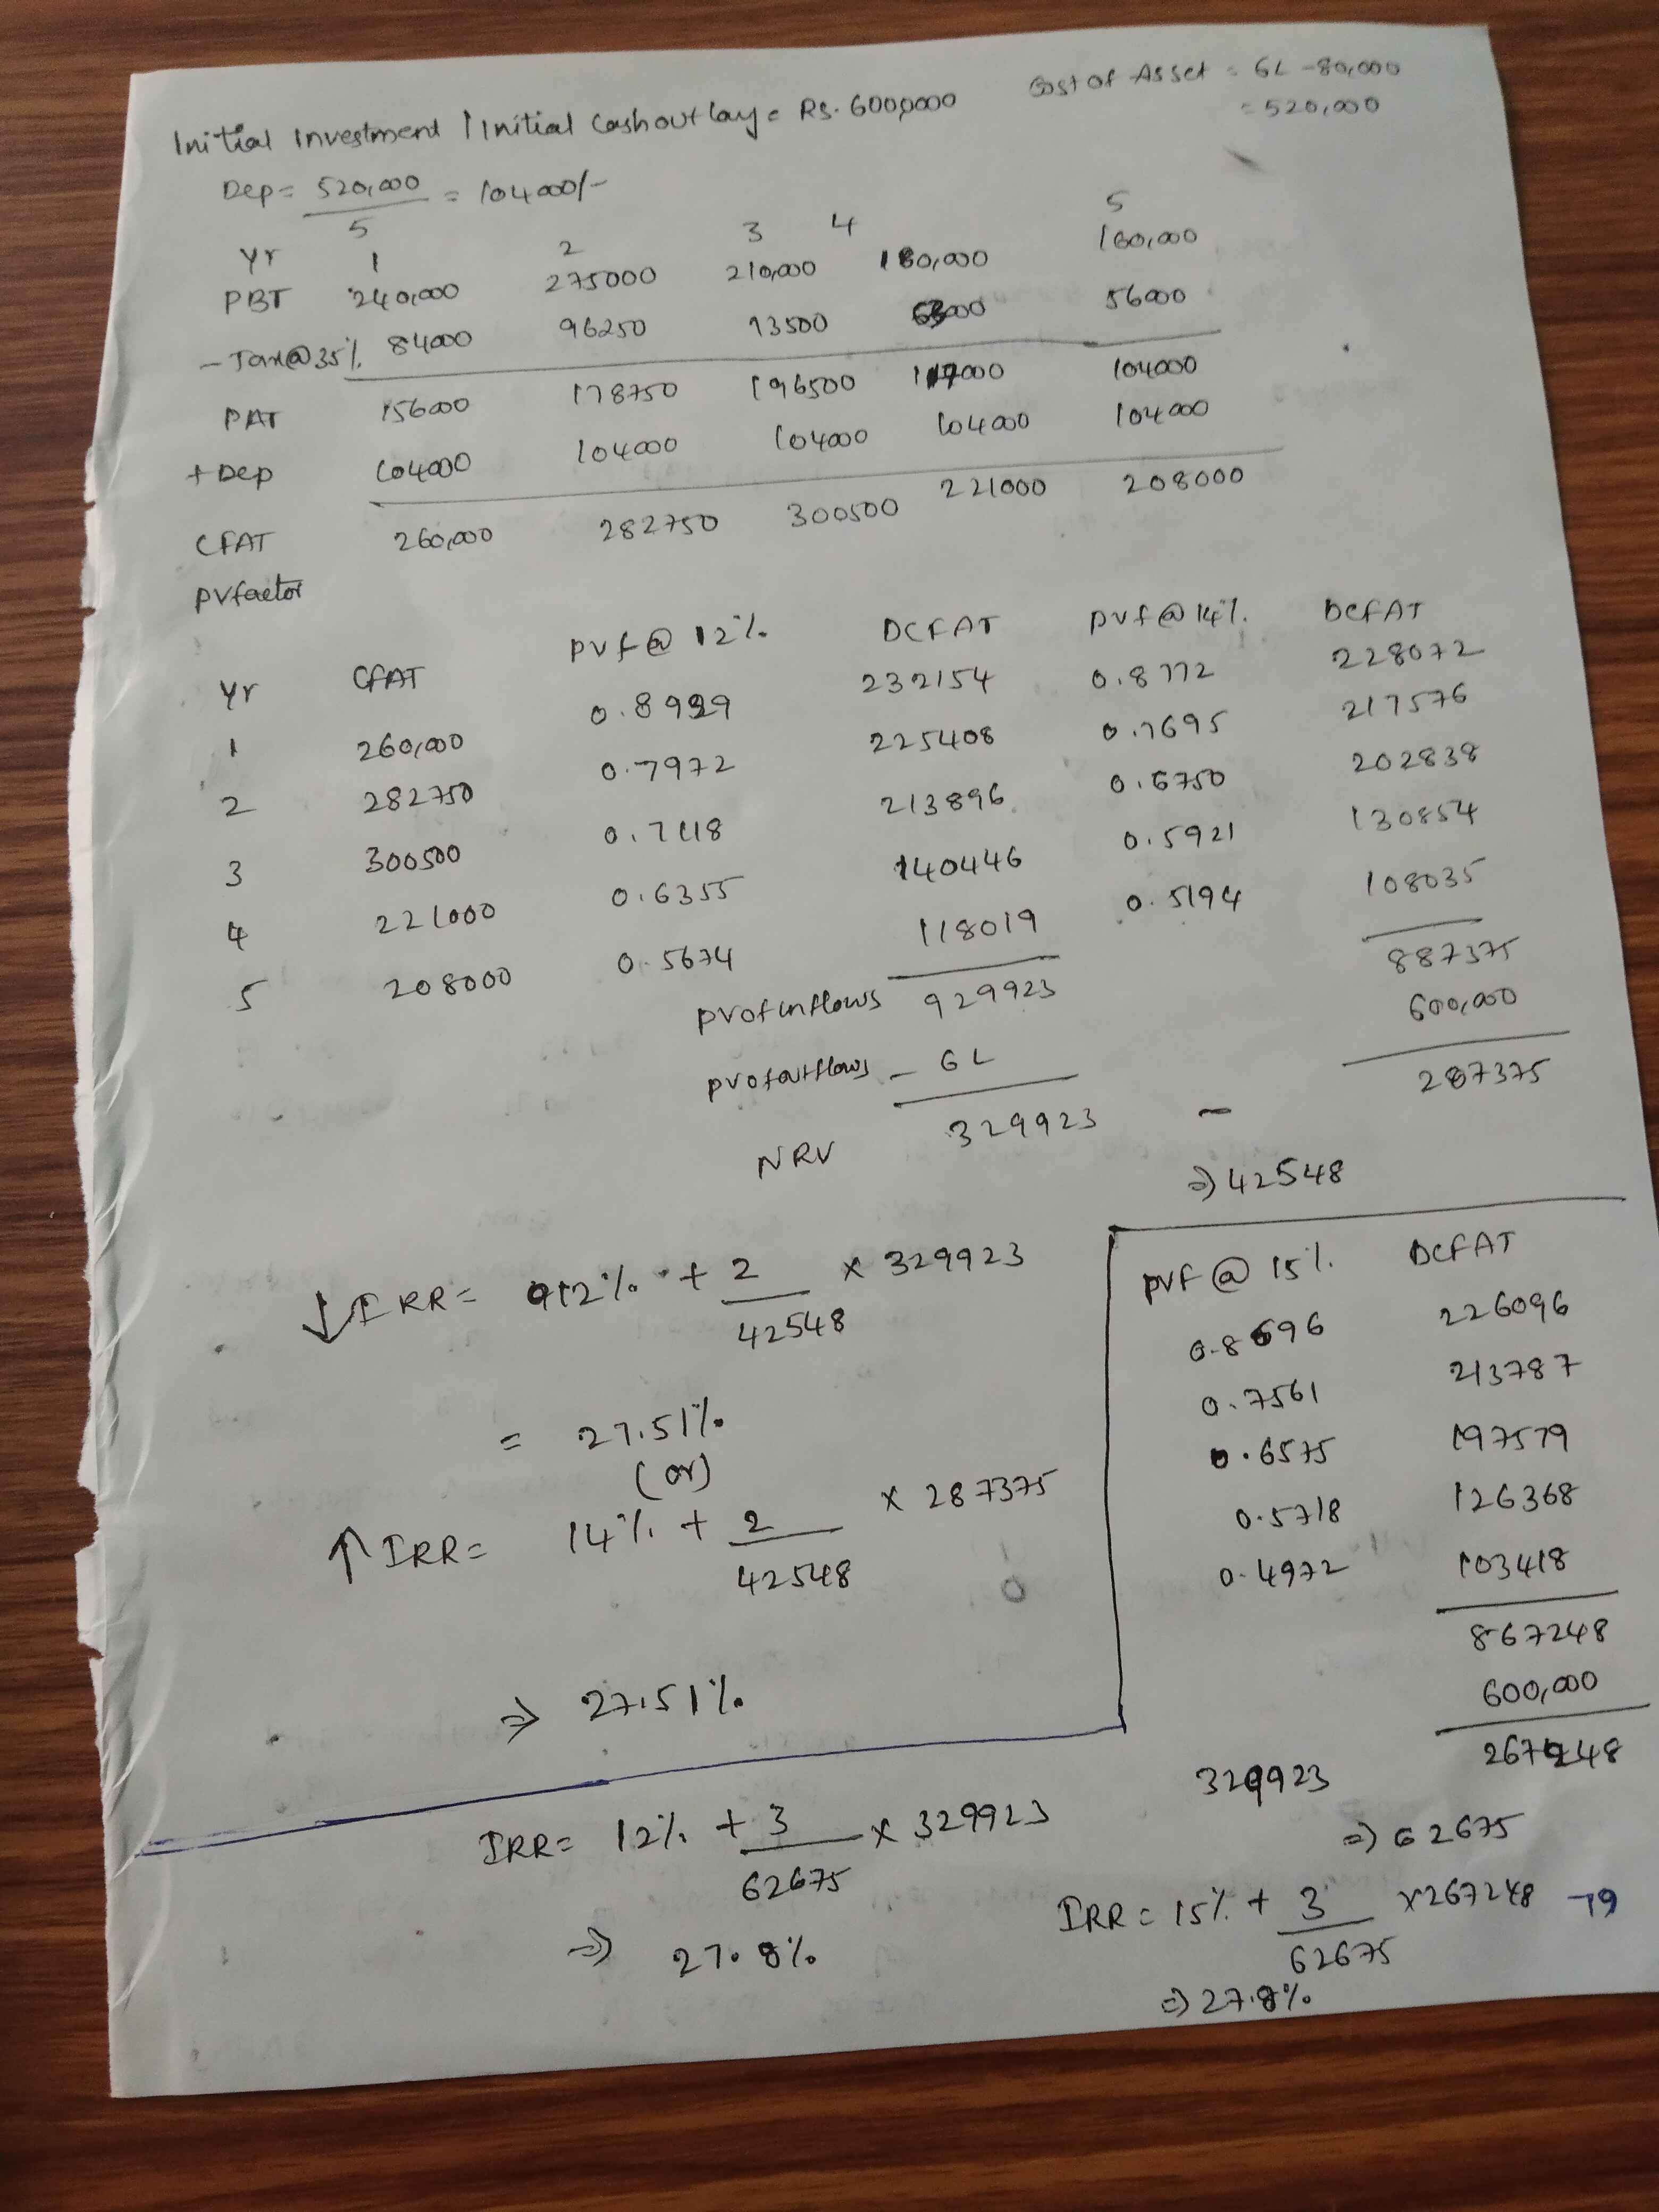 Initial Investment / Initial Cash out lay = Rs. 600,000
Cost of Asset = 6L - 80,000
= 520,000
Dep = 520,000 / 5 = 104000/-
Yr 1 2 3 4 5
PBT 240,000 275000 210,000 180,000 160,000
- Tax@35% 84000 96250 13500 63000 56000
PAT 156000 178750 196500 117000 104000
+ Dep 104000 104000 104000 104000 104000
CFAT 260,000 282750 300500 221000 208000
PV factor
Yr CFAT PVf@ 12% DCFAT PVf@ 14% DCFAT
1 260,000 0.8929 232154 0.8772 228072
2 282750 0.7972 225408 0.7695 217576
3 300500 0.7118 213896 0.6750 202838
4 221000 0.6355 140446 0.5921 130854
5 208000 0.5674 118019 0.5194 108035
PV of inflows 929923 887375
PV of outflows - 6L 600,000
NRV 329923 - 287375
⇒ 42548
↓ IRR = 12% + 2 / 42548 x 329923
= 27.51%
(or)
↑ IRR = 14% + 2 / 42548 x 287375
⇒ 27.51%
PVF @ 15% DCFAT
0.8696 226096
0.7561 213787
0.6575 197579
0.5718 126368
0.4972 103418
867248
600,000
267248
329923
⇒ 62675
IRR = 12% + 3 / 62675 x 329923
⇒ 27.8%
IRR = 15% + 3 / 62675 x 267248
⇒ 27.8%